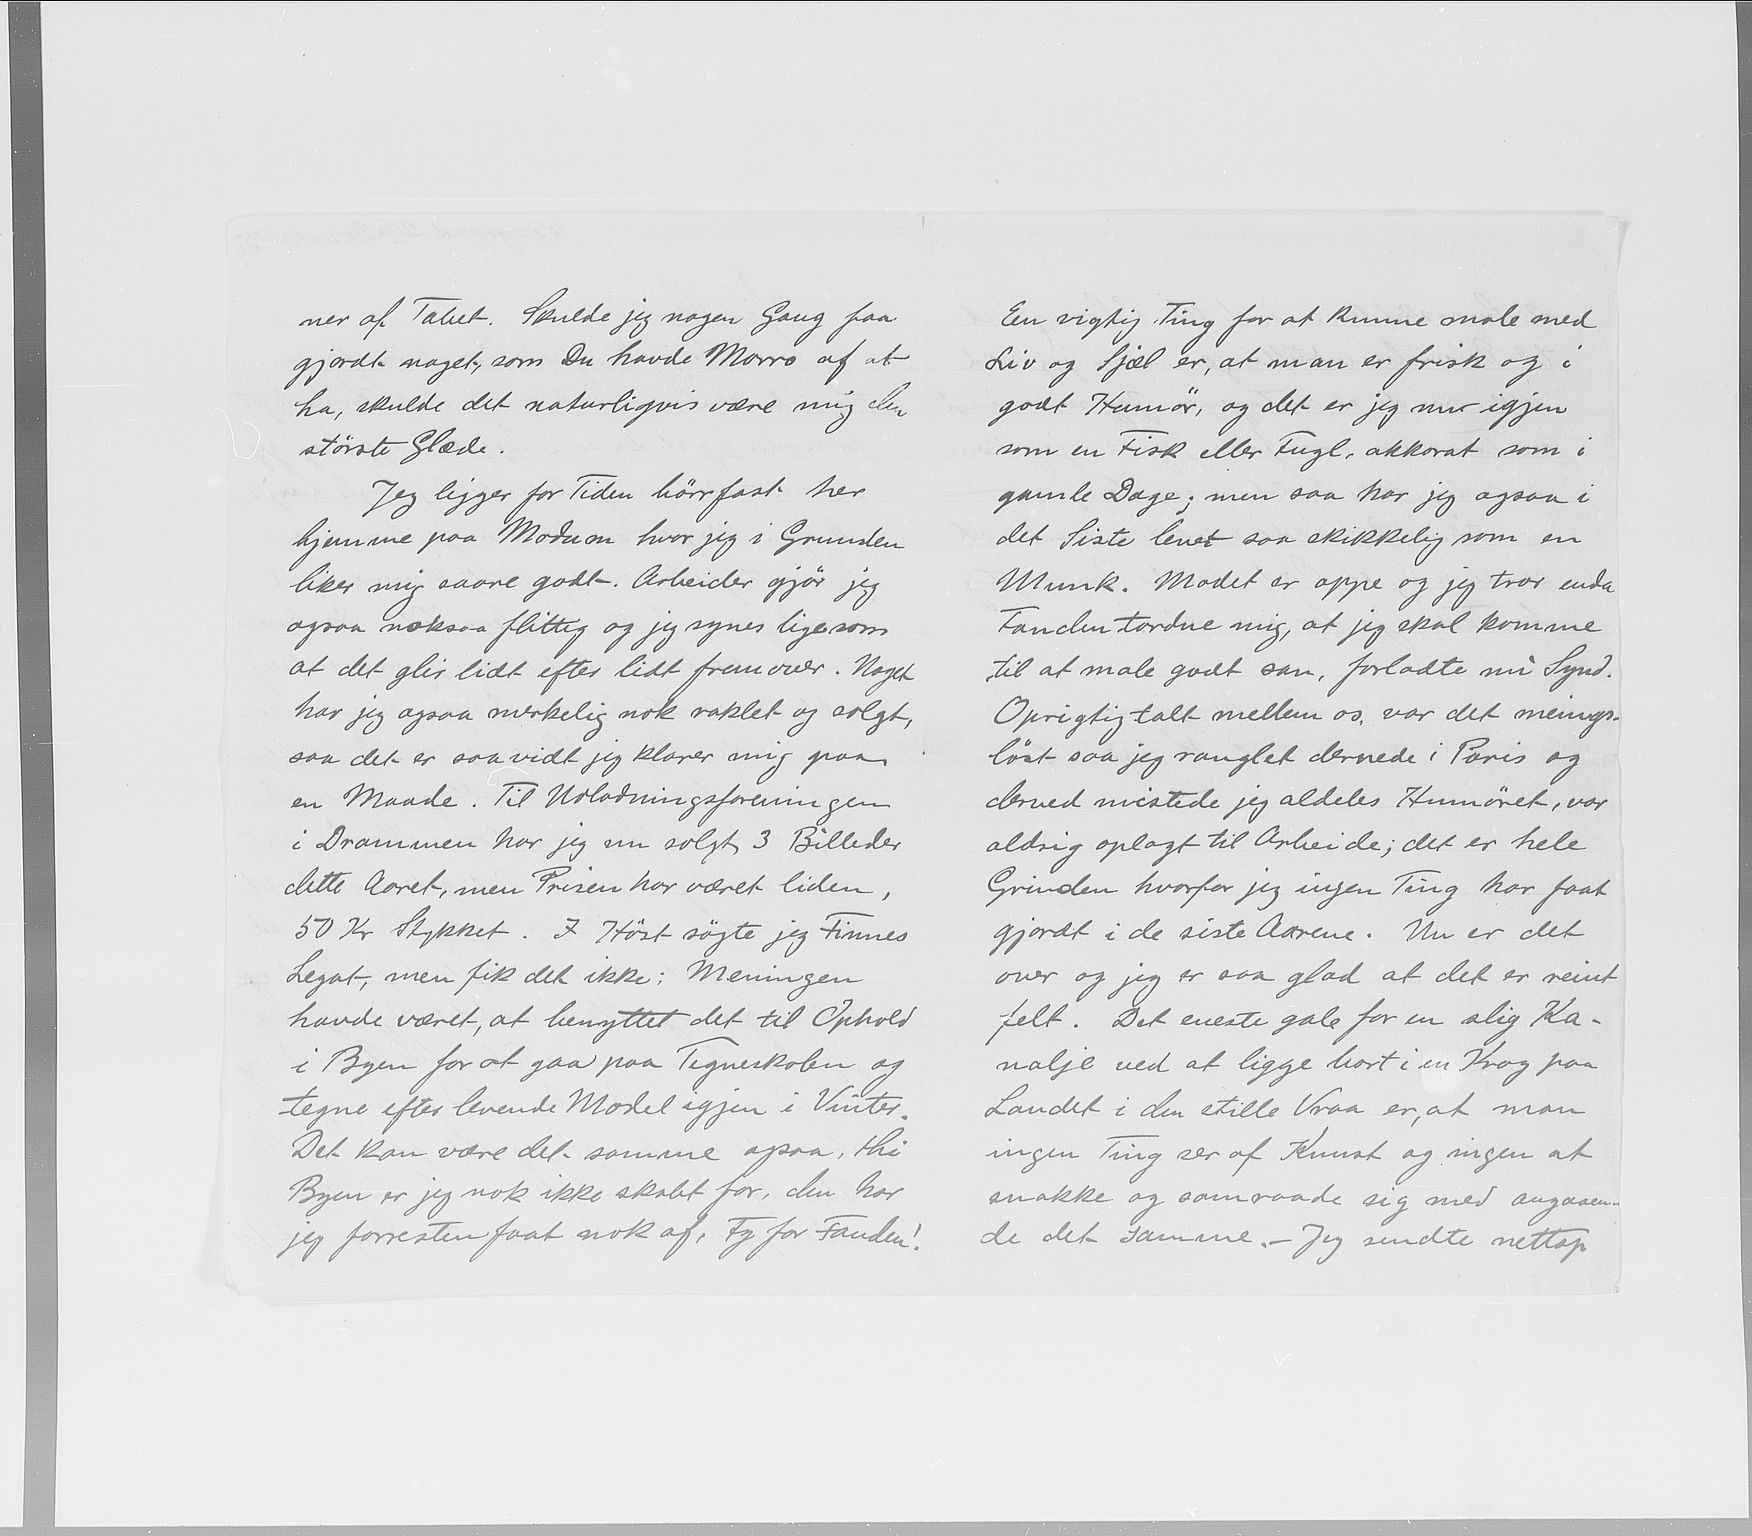 ner af Tabet. Skulde jeg nogen Gang faa
gjordt noget, som Du havde Morro af at
ha, skulde det naturligvis være mig den
störste Glæde.
Jeg ligger for Tiden börrfast her
hjemme paa Modum hvor jeg i Grunden
liker mig saare godt. Arbeider gjör jeg
ogsaa noksaa flittig og jeg synes ligesom
at det glir lidt efter lidt fremover. Noget
har jeg ogsaa merkelig nok raklet og solgt,
saa det er saavidt jeg klarer mig paa
en Maade. Til Udlodningsforeningen
i Drammen har jeg nu solgt 3 Billeder
dette Aaret, men Prisen har været liden,
50 Kr Stykket. I Höst søgte jeg Finnes
Legat, men fik det ikke; Meningen
havde været, at benyttet det til Ophold
i Byen for at gaa paa Tegneskolen og
tegne efter levende Model igjen i Vinter.
Det kan være det samme ogsaa, thi
Byen er jeg nok ikke skabt for, den har
jeg forresten faat nok af, Fy for Fanden!
Een vigtig Ting for at kunne male med
Liv og Sjæl er, at man er frisk og i
godt Humör, og det er jeg nu igjen
som en Fisk eller Fugl, akkorat som i
gamle Dage; men saa har jeg ogsaa i
det Siste levet saa skikkelig som en
Munk. Modet er oppe og jeg tror enda
Fanden tordne mig, at jeg skal komme
til at male godt saa, forladte mi Synd.
Oprigtig talt mellem os, var det menings-
löst saa jeg ranglet dernede i Paris og
derved mistede jeg aldeles Humöret, var
aldrig oplagt til Arbeide; det er hele
Grunden hvorfor jeg ingen Ting har faat
gjordt i de siste Aarene. Nu er det
over og jeg er saa glad at det er reint
felt. Det eneste gale for en slig Ka-
nalje ved at ligge bort i en Krog paa
Landet i den stille Vraa er, at man
ingen Ting ser af Kunst og ingen at
snakke og samraade sig med angaaen-
de det samme. – Jeg sendte nettop